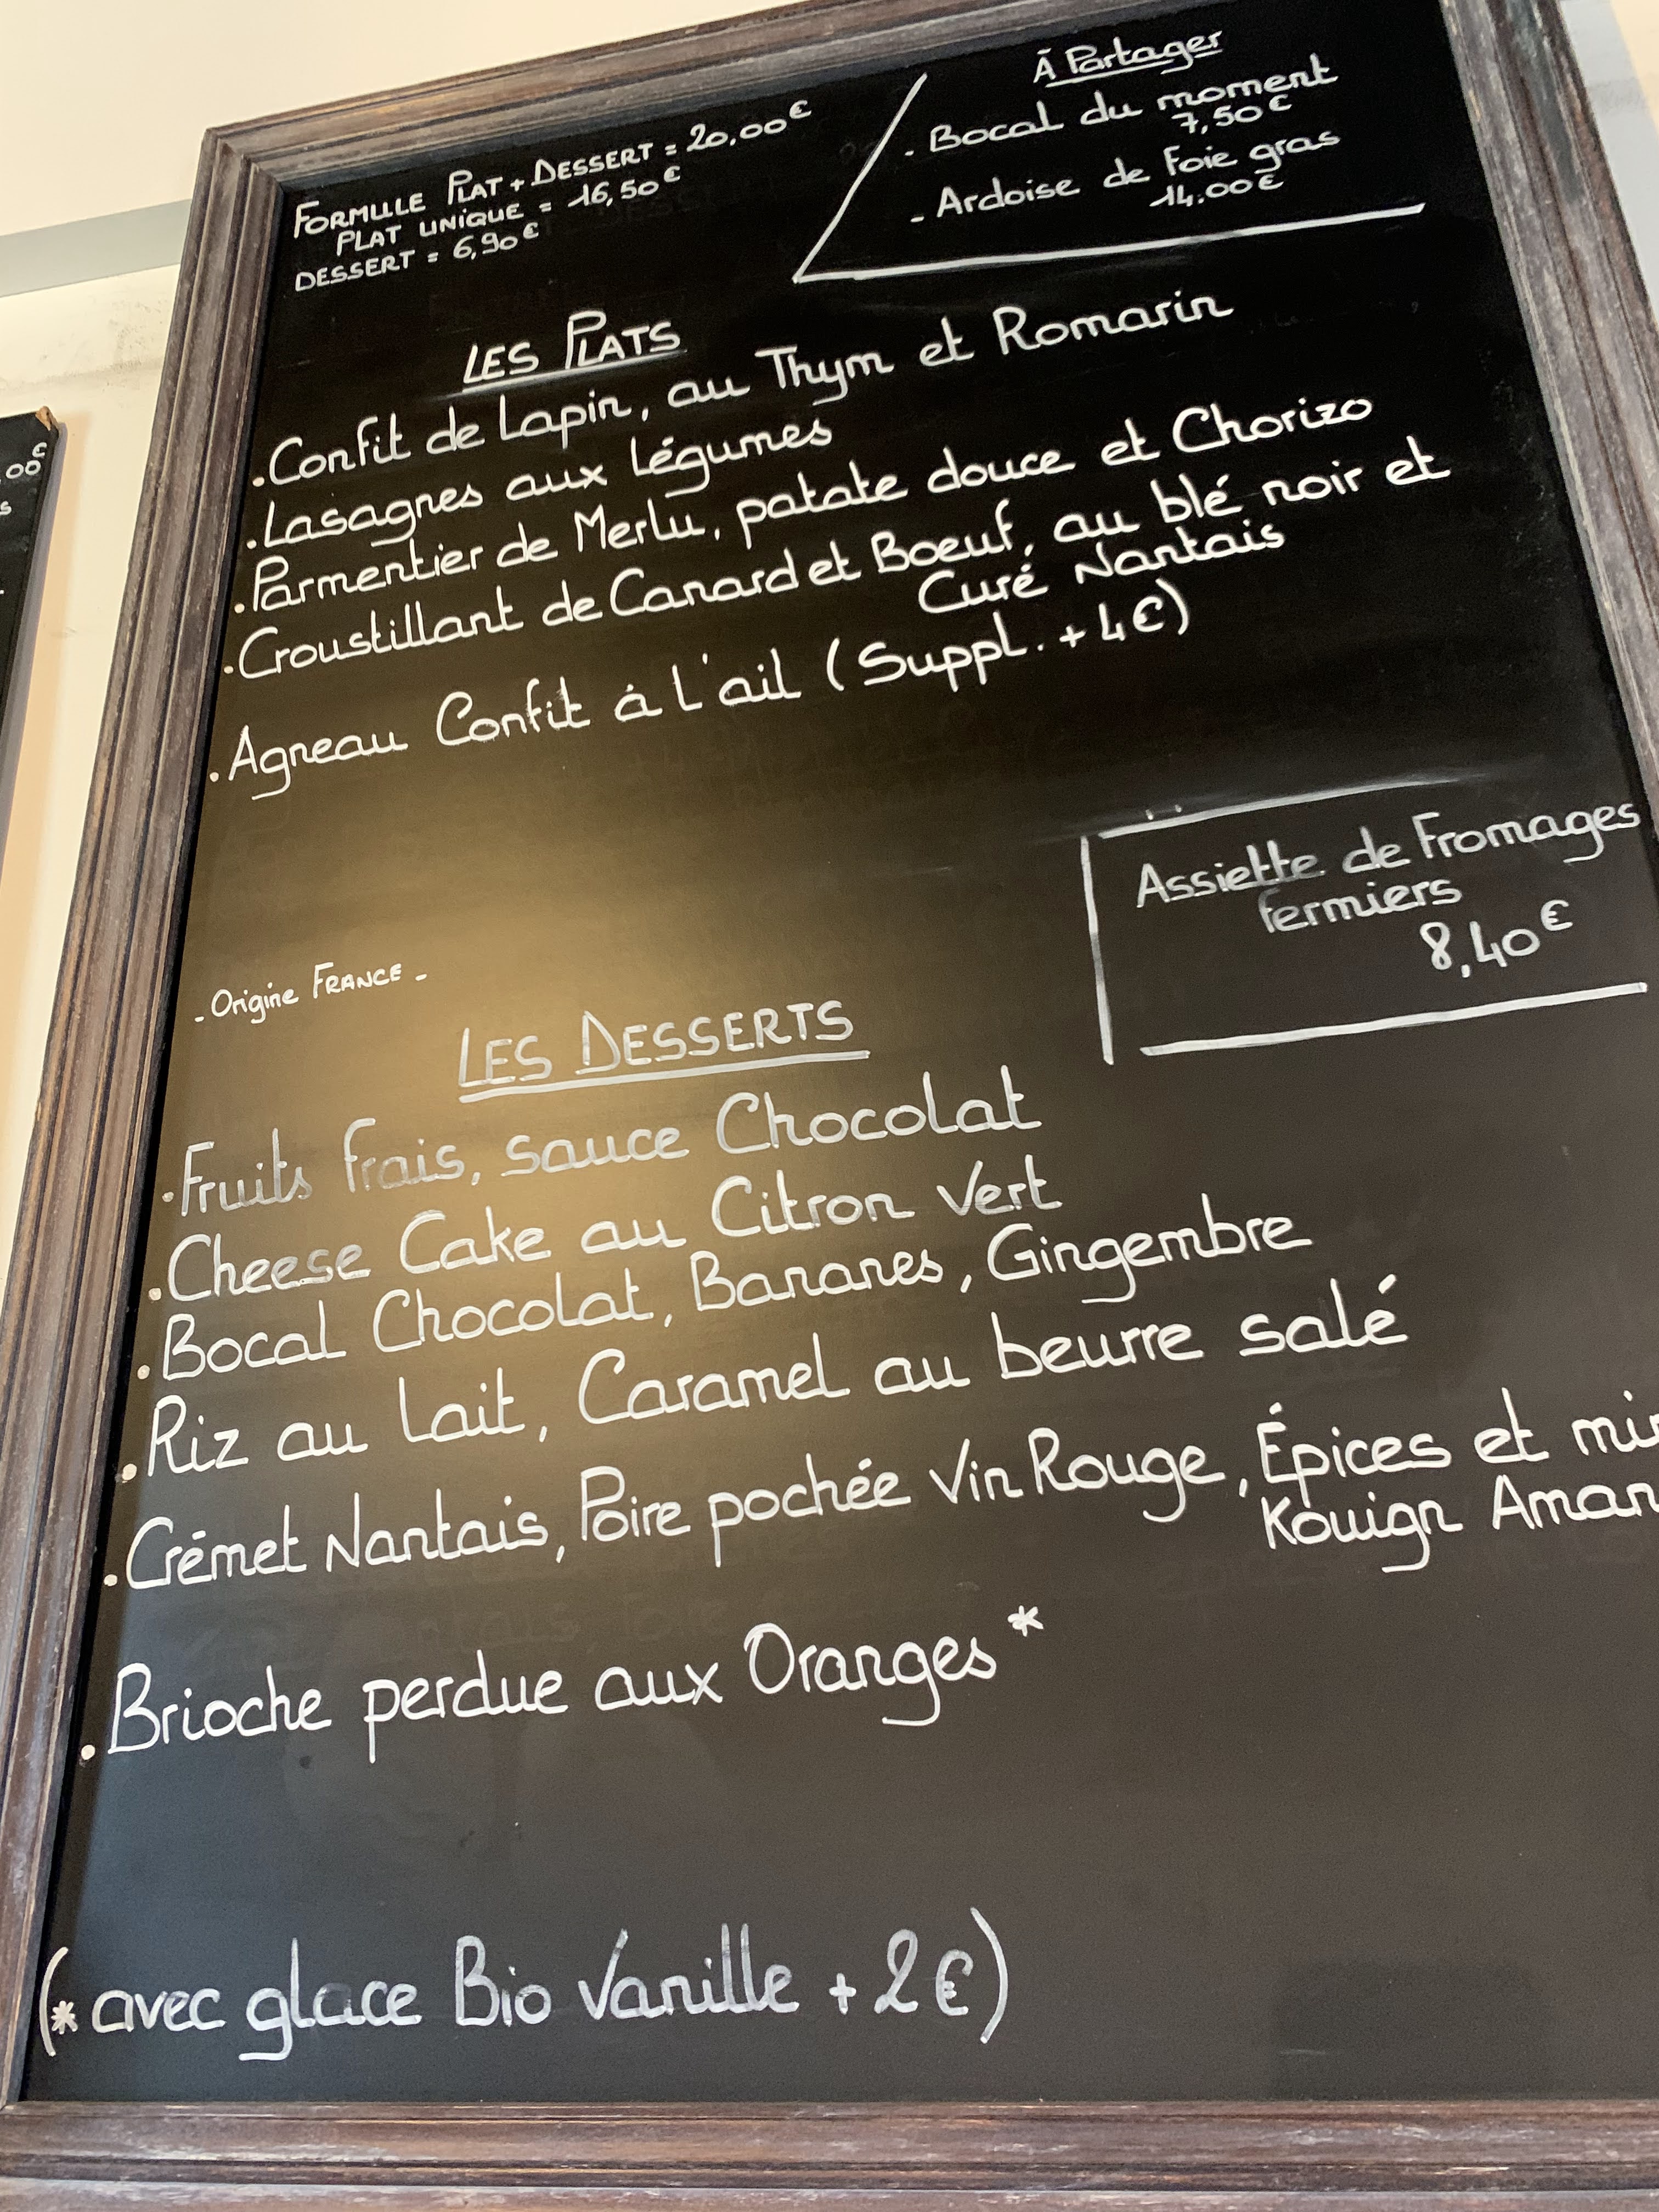 FORMULE PLAT + DESSERT = 20,00€
PLAT UNIQUE = 16,50€
DESSERT = 6,90€
À Partager
. Bocal du moment
7,50€
- Ardoise de Foie gras
14.00€
LES PLATS
. Confit de Lapin, au Thym et Romarin
. Lasagnes aux légumes
. Parmentier de Merlu, patate douce et Chorizo
. Croustillant de Canard et Boeuf, au blé noir et
Curé Nantais
. Agneau Confit à l'ail (Suppl. + 4€)
Assiette de Fromages
fermiers
8,40€
- Origine FRANCE -
LES DESSERTS
. Fruits frais, sauce Chocolat
. Cheese Cake au Citron vert
. Bocal Chocolat, Bananes, Gingembre
. Riz au lait, Caramel au beurre salé
. Crémet Nantais, Poire pochée Vin Rouge, Épices et
Kouign
. Brioche perdue aux Oranges*
(* avec glace Bio Vanille + 2€)